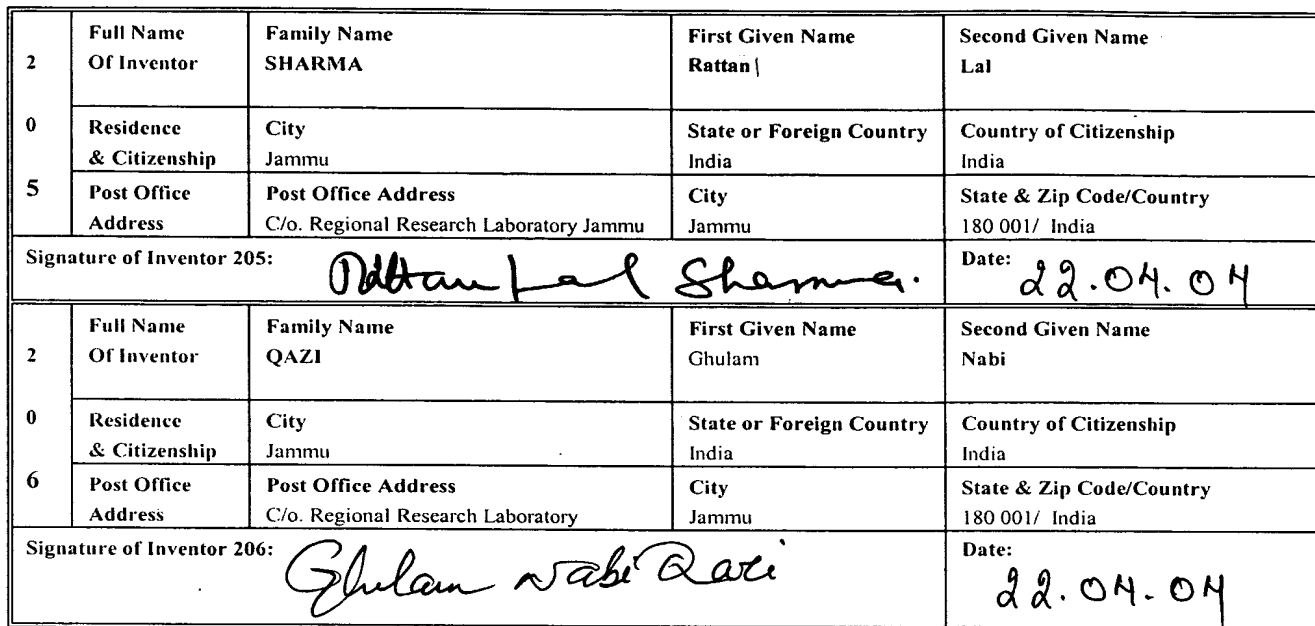 2 Full Name Of Inventor Family Name SHARMA First Given Name Rattan Second Given Name Lal
0 Residence & Citizenship City Jammu State or Foreign Country India Country of Citizenship India
5 Post Office Address Post Office Address C/o. Regional Research Laboratory Jammu City Jammu State & Zip Code/Country 180 001/ India
Signature of Inventor 205: Rattan Lal Sharma. Date: 22.04.04
2 Full Name Of Inventor Family Name QAZI First Given Name Ghulam Second Given Name Nabi
0 Residence & Citizenship City Jammu State or Foreign Country India Country of Citizenship India
6 Post Office Address Post Office Address C/o. Regional Research Laboratory City Jammu State & Zip Code/Country 180 001/ India
Signature of Inventor 206: Ghulam Nabi Qazi Date: 22.04.04